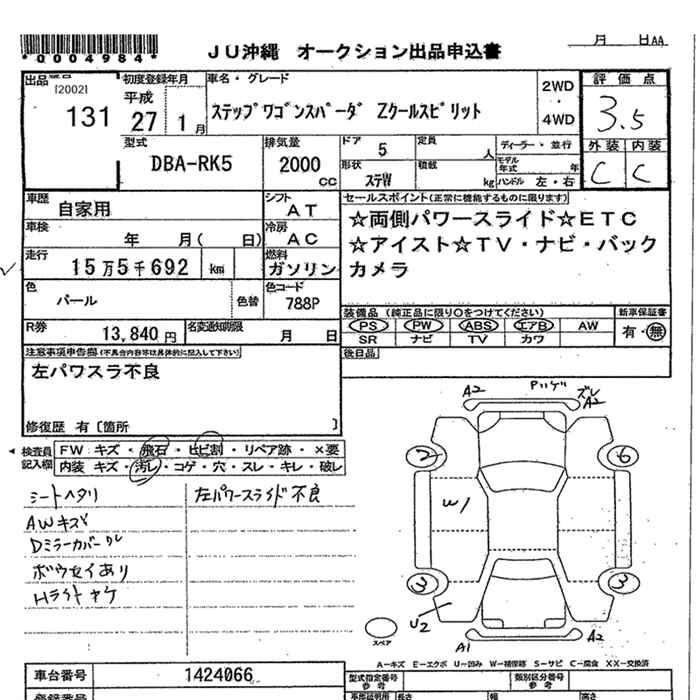 *0004984*
JU沖縄 オークション出品申込書
月 日AA
出品番号 初度登録年月 車名・グレード 評価点
[2002] 131
平成 27 1月
ステップワゴンスパーダ Zクールスピリット
2WD ・ 4WD
3.5
型式 DBA-RK5
排気量 2000 CC
ドア 5 定員 人 ディーラー・並行
形状 ステW 積載 kg モデル年式 年
ハンドル 左・右
外装 内装
C C
車歴 自家用
シフト AT
セールスポイント(正常に機能するものに限ります)
☆両側パワースライド☆ETC
☆アイスト☆TV・ナビ・バック
カメラ
車検 年 月( 日)
冷房 AC
走行 15万5千692 km
燃料 ガソリン
色 パール 色替
色コード 788P
装備品(純正品に限り○をつけてください) 新車保証書
PS PW ABS エアB AW 有・無
SR ナビ TV カワ
R券 13,840円 名変通知期限 月 日
後日品
注意事項申告欄(不具合内容等は具体的に記入して下さい)
左パワスラ不良
修復歴 有〔箇所 〕
検査員記入欄
FW キズ・飛石・ヒビ割・リペア跡・×要
内装 キズ・汚レ・コゲ・穴・スレ・キレ・破レ
シートヘタリ 左パワースライド不良
AWキズ
Dミラーカバーワレ
ボウセイあり
Hライトヤケ
A2 Pハゲ ズレ A2
2 6
W1
3 3
U2
スペア
A1 A2
A—キズ E—エクボ U—凹み W—補修跡 S—サビ C—腐食 XX—交換済
車台番号 1424066
型式指定番号 参考 類別区分番号 参考
登録番号 長さ 幅 高さ